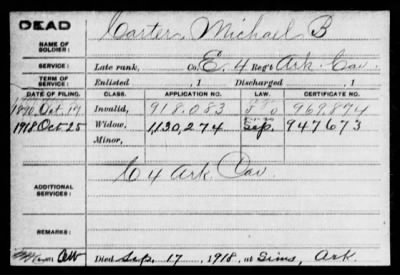 DEAD
NAME OF SOLDIER: Carter, Michael B
SERVICE: Late rank, Co. E, 4 Reg't Ark Cav.
TERM OF SERVICE: Enlisted , 1 Discharged , 1
DATE OF FILING. CLASS. APPLICATION NO. LAW. CERTIFICATE NO.
1890 Oct. 17 Invalid, 918.083 969.874
1918 Oct 25 Widow, 1130,274 Sep. 947673
Minor,
ADDITIONAL SERVICES: Co 4 Ark Cav
REMARKS:
Died Sep. 17, 1918, at Sims, Ark.